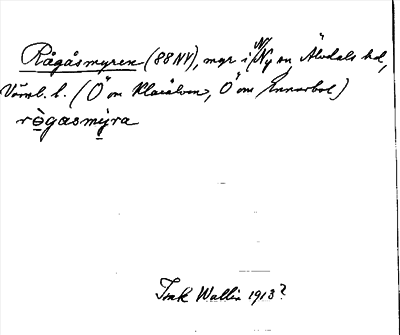 Rågåsmyren (88NV), myr i Ny sn, Älvdals hd,
Värml. l. (Ö om Klarälven, Ö om Ennarbol)
rògasmỳra
Torsten Wallin 1913?